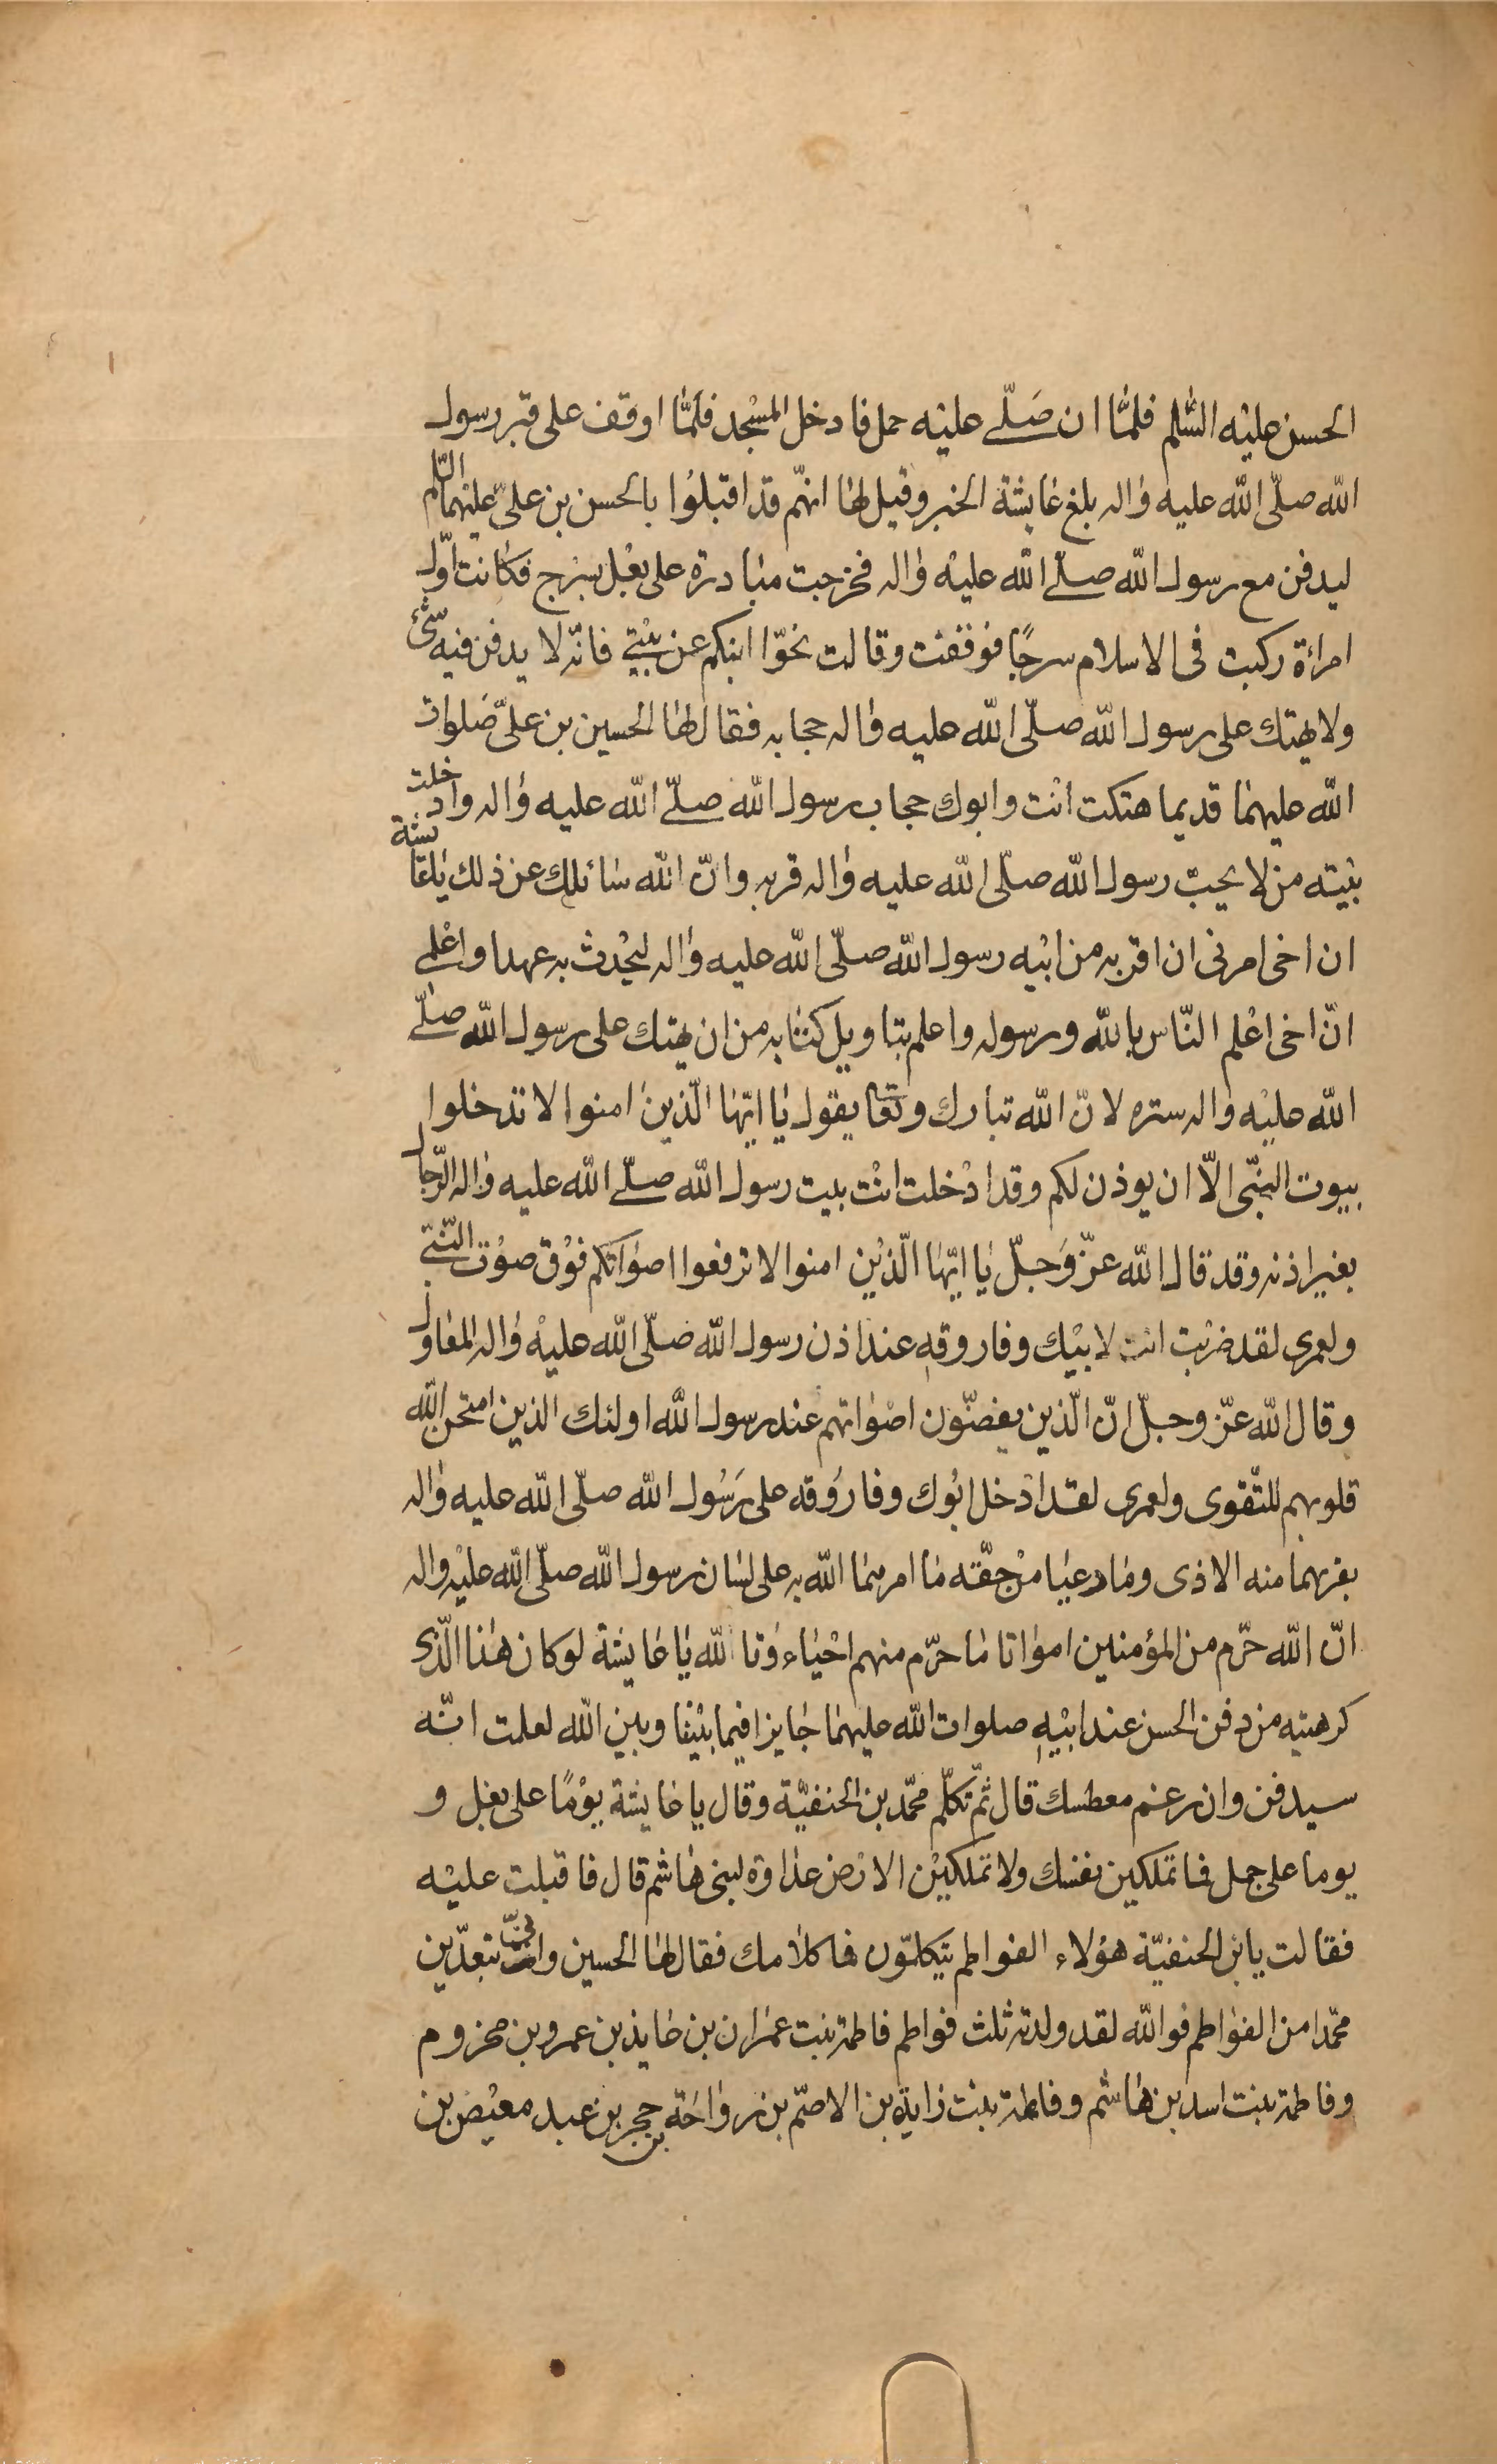 الحسن عليْه السّلم فلمّا ان صَلّے عليْه حمل فادخل المسْجد فلمّا اوقف على قبر رسول
الله صلّى الله عليه واله بلغ عايشة الخبر وقيل لها انهّم قد اقبلوُا بالحسن بن علىّ عليهما السّلام
ليدفن مع رسول الله صلّے الله عليْه واله فخرجت مبادرة على بغْل بسرج فكانت اوّل
امراءة ركبت فى الاسلام سرجًا فوقفت وقالت نحّوا ابنكم عن بيْتے فانّه لا يدفن فيه شئ
ولا يهتك على رسول الله صلّى الله عليه واله حجابه فقال لها الحسين بن علىّ صَلوات
الله عليهما قديما هتكت انْت وابوك حجاب رسول الله صلّے الله عليه واله وادخلت
بيْته من لا يحبّ رسول الله صلّى الله عليه واله قربه وانّ الله سائلك عن ذلك ياعايشة
ان اخى امرنى ان اقربه من ابيْه رسول الله صلّى الله عليه واله ليحْدث به عهدا واعْلمے
انّ اخى اعْلم النّاس بالله ورسوله واعلم بتاويل كتابه من ان يهتك على رسول الله صلّے
الله عليْه واله ستره لانّ الله تبارك وتعالى يقول يا ايّها الّذين امنوا لا تدخلوا
بيوت النبّى الاّ ان يوذن لكم وقد ادْخلت انْت بيت رسول الله صلّے الله عليه واله الرّجال
بغير اذنه وقد قال الله عزّ وَجلّ يا ايّها الّذيْن امنوا لا ترفعوا اصواتكم فوْق صوْت النّبے
ولعمرى لقد ضربْت انت لابيْك وفاروقه عند اذن رسول الله صَلّى الله عليْه واله المعاول
وقال الله عزّ وجلّ انّ الّذين يغضّون اصْواتهم عند رسول الله اولئك الذين امتحن الله
قلوبهم للتّقوى ولعمرى لقد ادْخل ابُوك وفارُوقه على رَسُول الله صلّى الله عليه واله
بقربهما منه الاذى وما رعيا منْ حقّه ما امرهما الله به على لسان رسول الله صلّى الله عليْه واله
انّ الله حرّم من المؤمنين امواتا ما حرّم منهم احْياء وتا لله يا عايشة لو كان هذا الّذى
كرهتيه من دفن الحسن عند ابيْهِ صلوات الله عليهما جايزا فيما بيْننا وبين الله لعلمت انّه
سيدفن وان رغم معطسك قال ثمّ تكلّم محّمد بن الحنفيّة وقال يا عايشة يوْمًا على بغل و
يوما على جمل فما تملكين نفسك ولا تملكيْن الارْض عداوة لبنى هاشم قال فاقبلت عليْه
فقالت يابن الحنفيّة هؤلاء الفواطم يتكلمّون فما كلامك فقال لها الحسين وانّى تبعدّين
محّمدا من الفواطم فو الله لقد ولدته ثلث فواطم فاطمة بنت عمران بن عايذ بن عمرو بن مخزوم
وفاطمة بنت اسد بن هاشم وفاطمة بنت زايدة بن الاصمّ بن رواحَة بن حجر بن عبد معيْص بن